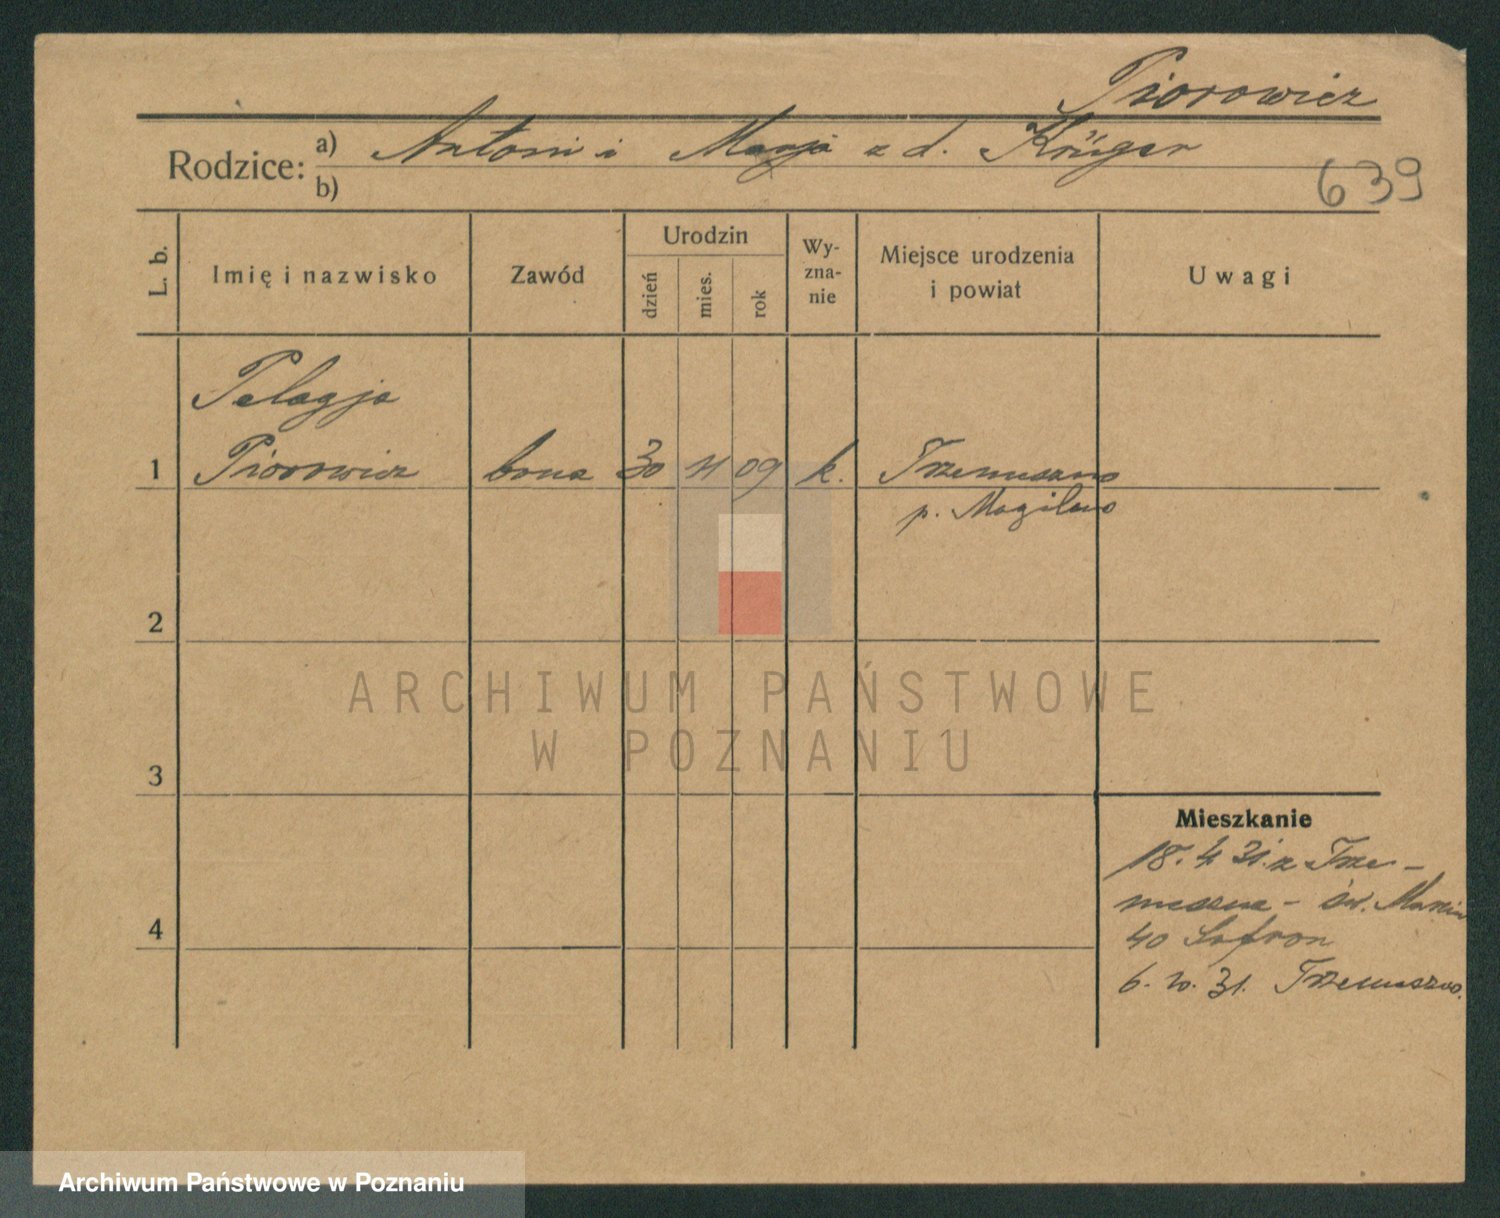 Piorowicz
Rodzice: a) Antoni i Marja z d. Krüger
b)
639
L. b.
Imię i nazwisko
Zawód
Urodzin
dzień
mies.
rok
Wy-
zna-
nie
Miejsce urodzenia
i powiat
Uwagi
Pelagja
1 Piorowicz 30 11 09 k. Trzemeszno
p. Mogilno
2
3
4
Mieszkanie
18. 4. 31. z Trze-
meszna - św. Marcin
40 Sofron
6. 10. 31. Trzemeszno.
ARCHIWUM PAŃSTWOWE
W POZNANIU
Archiwum Państwowe w Poznaniu